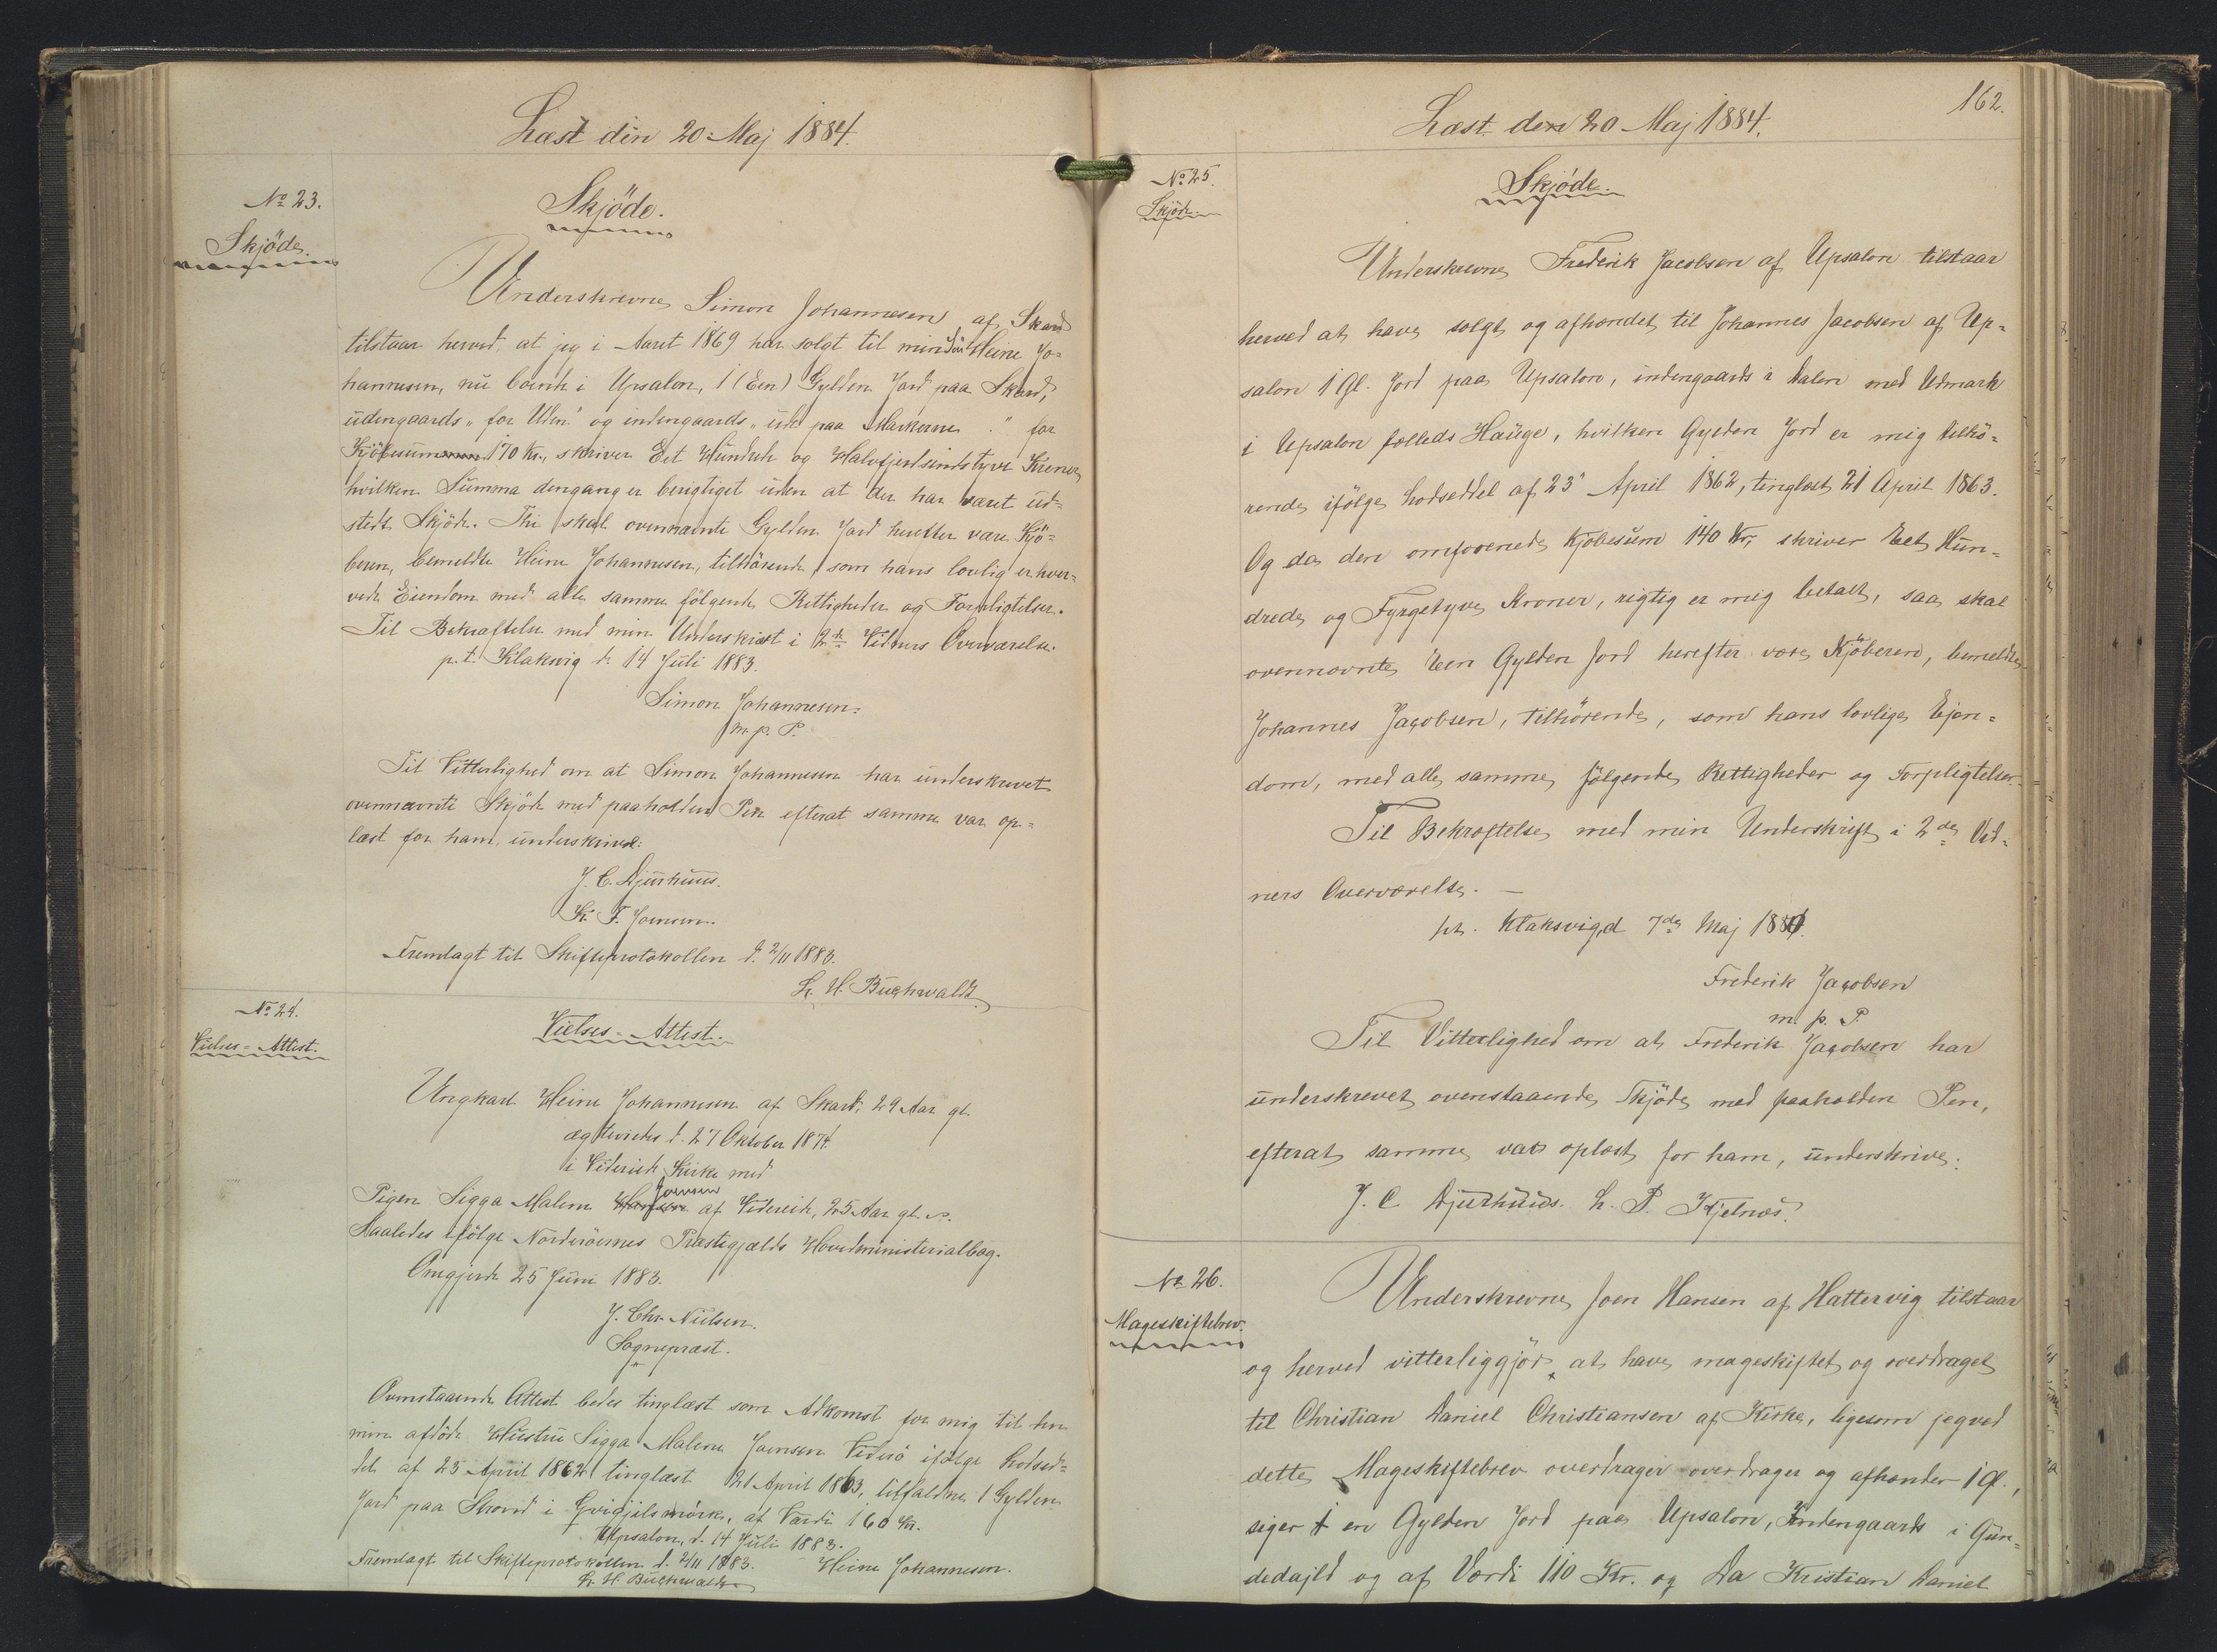 Læst den 20 Maj 1884.
No 23.
Skjöde.
Skjöde.
Underskrevne Simon Johannesen af Skard
tilstaar herved, at jeg i Aaret 1869 har solgt til min Søn Heine Jo=
hannesen, nu boende i Upsalon, 1 (Een) Gylden Jord paa Skard,
udengaards „for Uden“ og indengaards „ude paa Markerne“ for
Kjöbesum 170 Kr., skriver Eet Hundrede og Halvfjerdsindstyve Kroner
hvilken Summa dengang er berigtiget uden at der har været ud=
stedt Skjöde. Thi skal ovennævnte Gylden Jord herefter være Kjö=
beren, bemeldte Heine Johannesen, tilhörende som hans lovlig erhver=
vede Eiendom med alle samme fölgende Rettigheder og Forpligtelser.
Til Bekræftelse med min Underskrift i 2de Vidners Overværelse.
p.t. Klaksvig d. 14 Juli 1883.
Simon Johannesen
m. p. P.
Til Vitterlighed om at Simon Johannesen har underskrevet
ovennævnte Skjöde med paaholden Pen efterat samme var op=
læst for ham, underskrive:
J. C. Djurhuus.
K. F. Joensen.
Fremlagt til Skifteprotokollen d. 2/11 1883.
L. H. Buchwaldt
No 24.
Vielses=Attest.
Vielses=Attest.
Ungkarl Heine Johannesen af Skard, 29 Aar gl.
ægteviedes d. 27 Oktober 1874
i Videreide Kirke med
Pigen Sigga Malene Hansen Joensen af Videreide, 25 Aar gl.
Saaledes ifölge Norderöernes Præstegjælds Hovedministerialbog.
Onegjerde 25 Juni 1883.
J. Chr. Nielsen.
Sognepræst.
Ovenstaaende Attest bedes tinglæst som Adkomst for mig til den
min afdöde Hustru Sigga Malene Joensen Viderö ifölge Lodsed=
del af 23 April 1862 tinglæst 21 April 1863, tilfaldne 1 Gylden
Jord paa Skard i af Værdi 160 Kr.
Upsalon, d. 14 Juli 1883.
Fremlagt til Skifteprotokollen d. 2/11 1883. Heine Johannesen.
L. H. Buchwaldt
Læst den 20 Maj 1884.
162.
No 25.
Skjöde
Skjöde.
Underskrevne Frederik Jacobsen af Upsalon tilstaar
herved at have solgt og afhændet til Johannes Jacobsen af Up=
salon 1 Gl. Jord paa Upsalon, indengaards i Dalen med Udmark
i Upsalon fælleds Hauge, hvilken Gylden Jord er mig tilhö=
rende ifölge Lodseddel af 23' April 1862, tinglæst 21 April 1863.
Og da den omforenede Kjöbesum 140 Kr, skriver Eet Hun=
drede og Fyrgetyve Kroner, rigtig er mig betalt, saa skal
ovennævnte Een Gylden Jord herefter være Kjöberen, bemeldte
Johannes Jacobsen, tilhörende, som hans lovlige Ejen=
dom, med alle samme fölgende Rettigheder og Forpligtelser.
Til Bekræftelse med min Underskrift i 2de Vid=
ners Overværelse. —
pt. Klaksvig, d 7de Maj 1884.
Frederik Jacobsen
m. p. P.
Til Vitterlighed om at Frederik Jacobsen har
underskrevet ovenstaaende Skjöde med paaholden Pen,
efterat samme var oplæst for ham, underskrive:
J. C Djurhuus. L. P. Kjelnæs.
No 26.
Mageskiftebrev.
Underskrevne Joen Hansen af Hattervig tilstaar
og herved vitterliggjör at have mageskiftet og overdraget
til Christian Daniel Christiansen af Kirke, ligesom jeg ved
dette Mageskiftebrev overdrager overdrager og afhænder 1 Gl.,
siger en Gylden Jord paa Upsalon, Indengaards i Gun=
dedajld og af Værdi 110 Kr. og Da Kristian Daniel